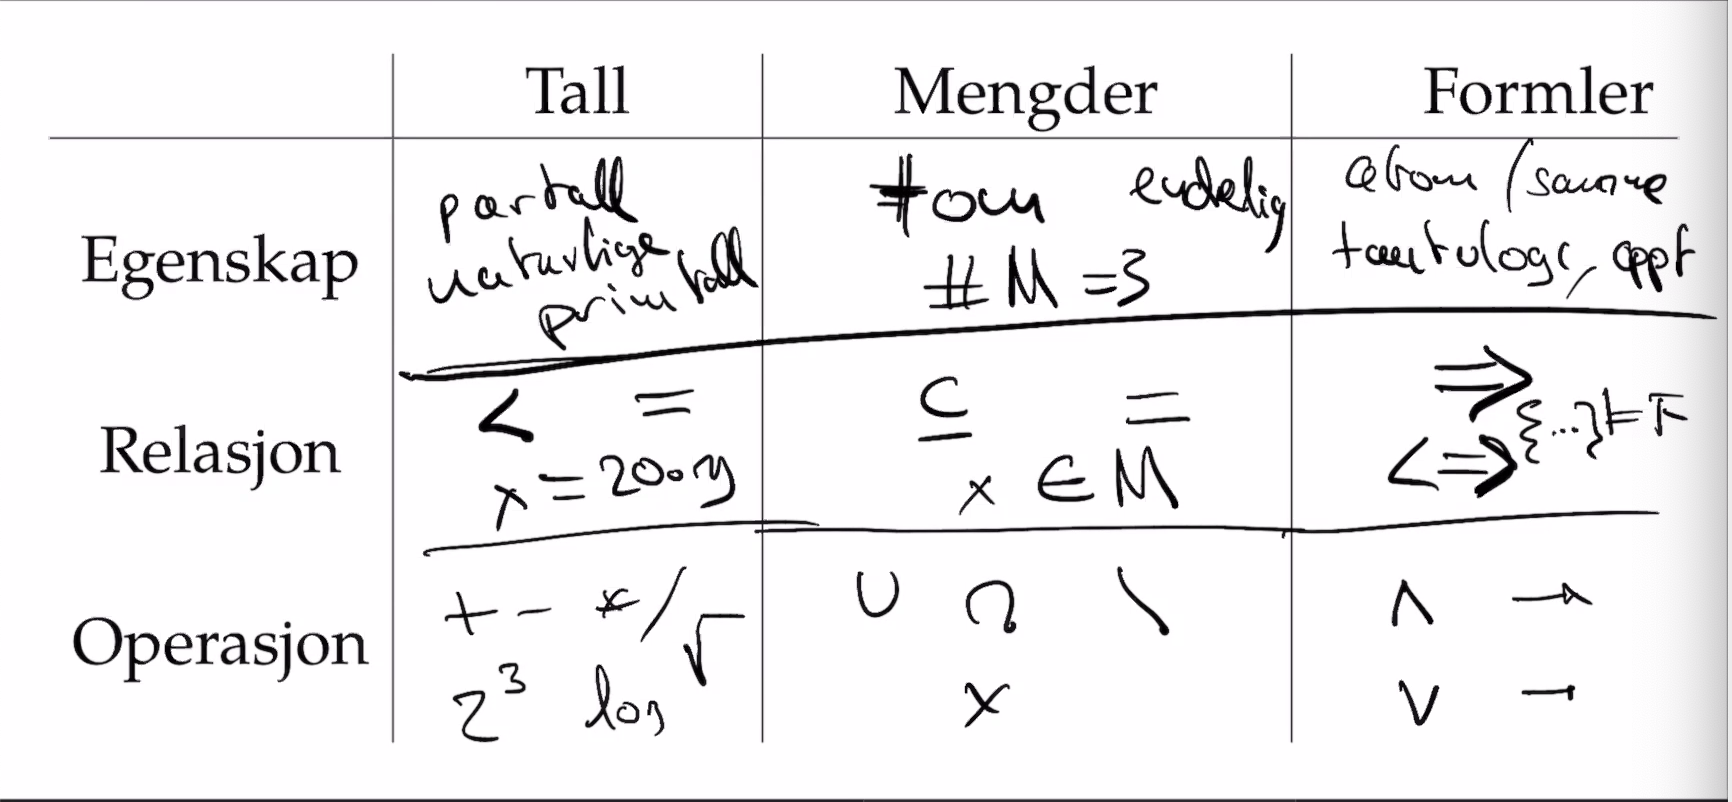 Tall Mengder Formler
Egenskap
partall
naturlige
primtall
#om endelig
# M = 3
atom / sanne
tautologi, oppf
Relasjon
< =
x = 200·y
⊆ =
x ∈ M
⇒
⇔ {...} ⊨ F
Operasjon
+ - * / √
2³ log
∪ ∩ \
×
∧ →
∨ ¬